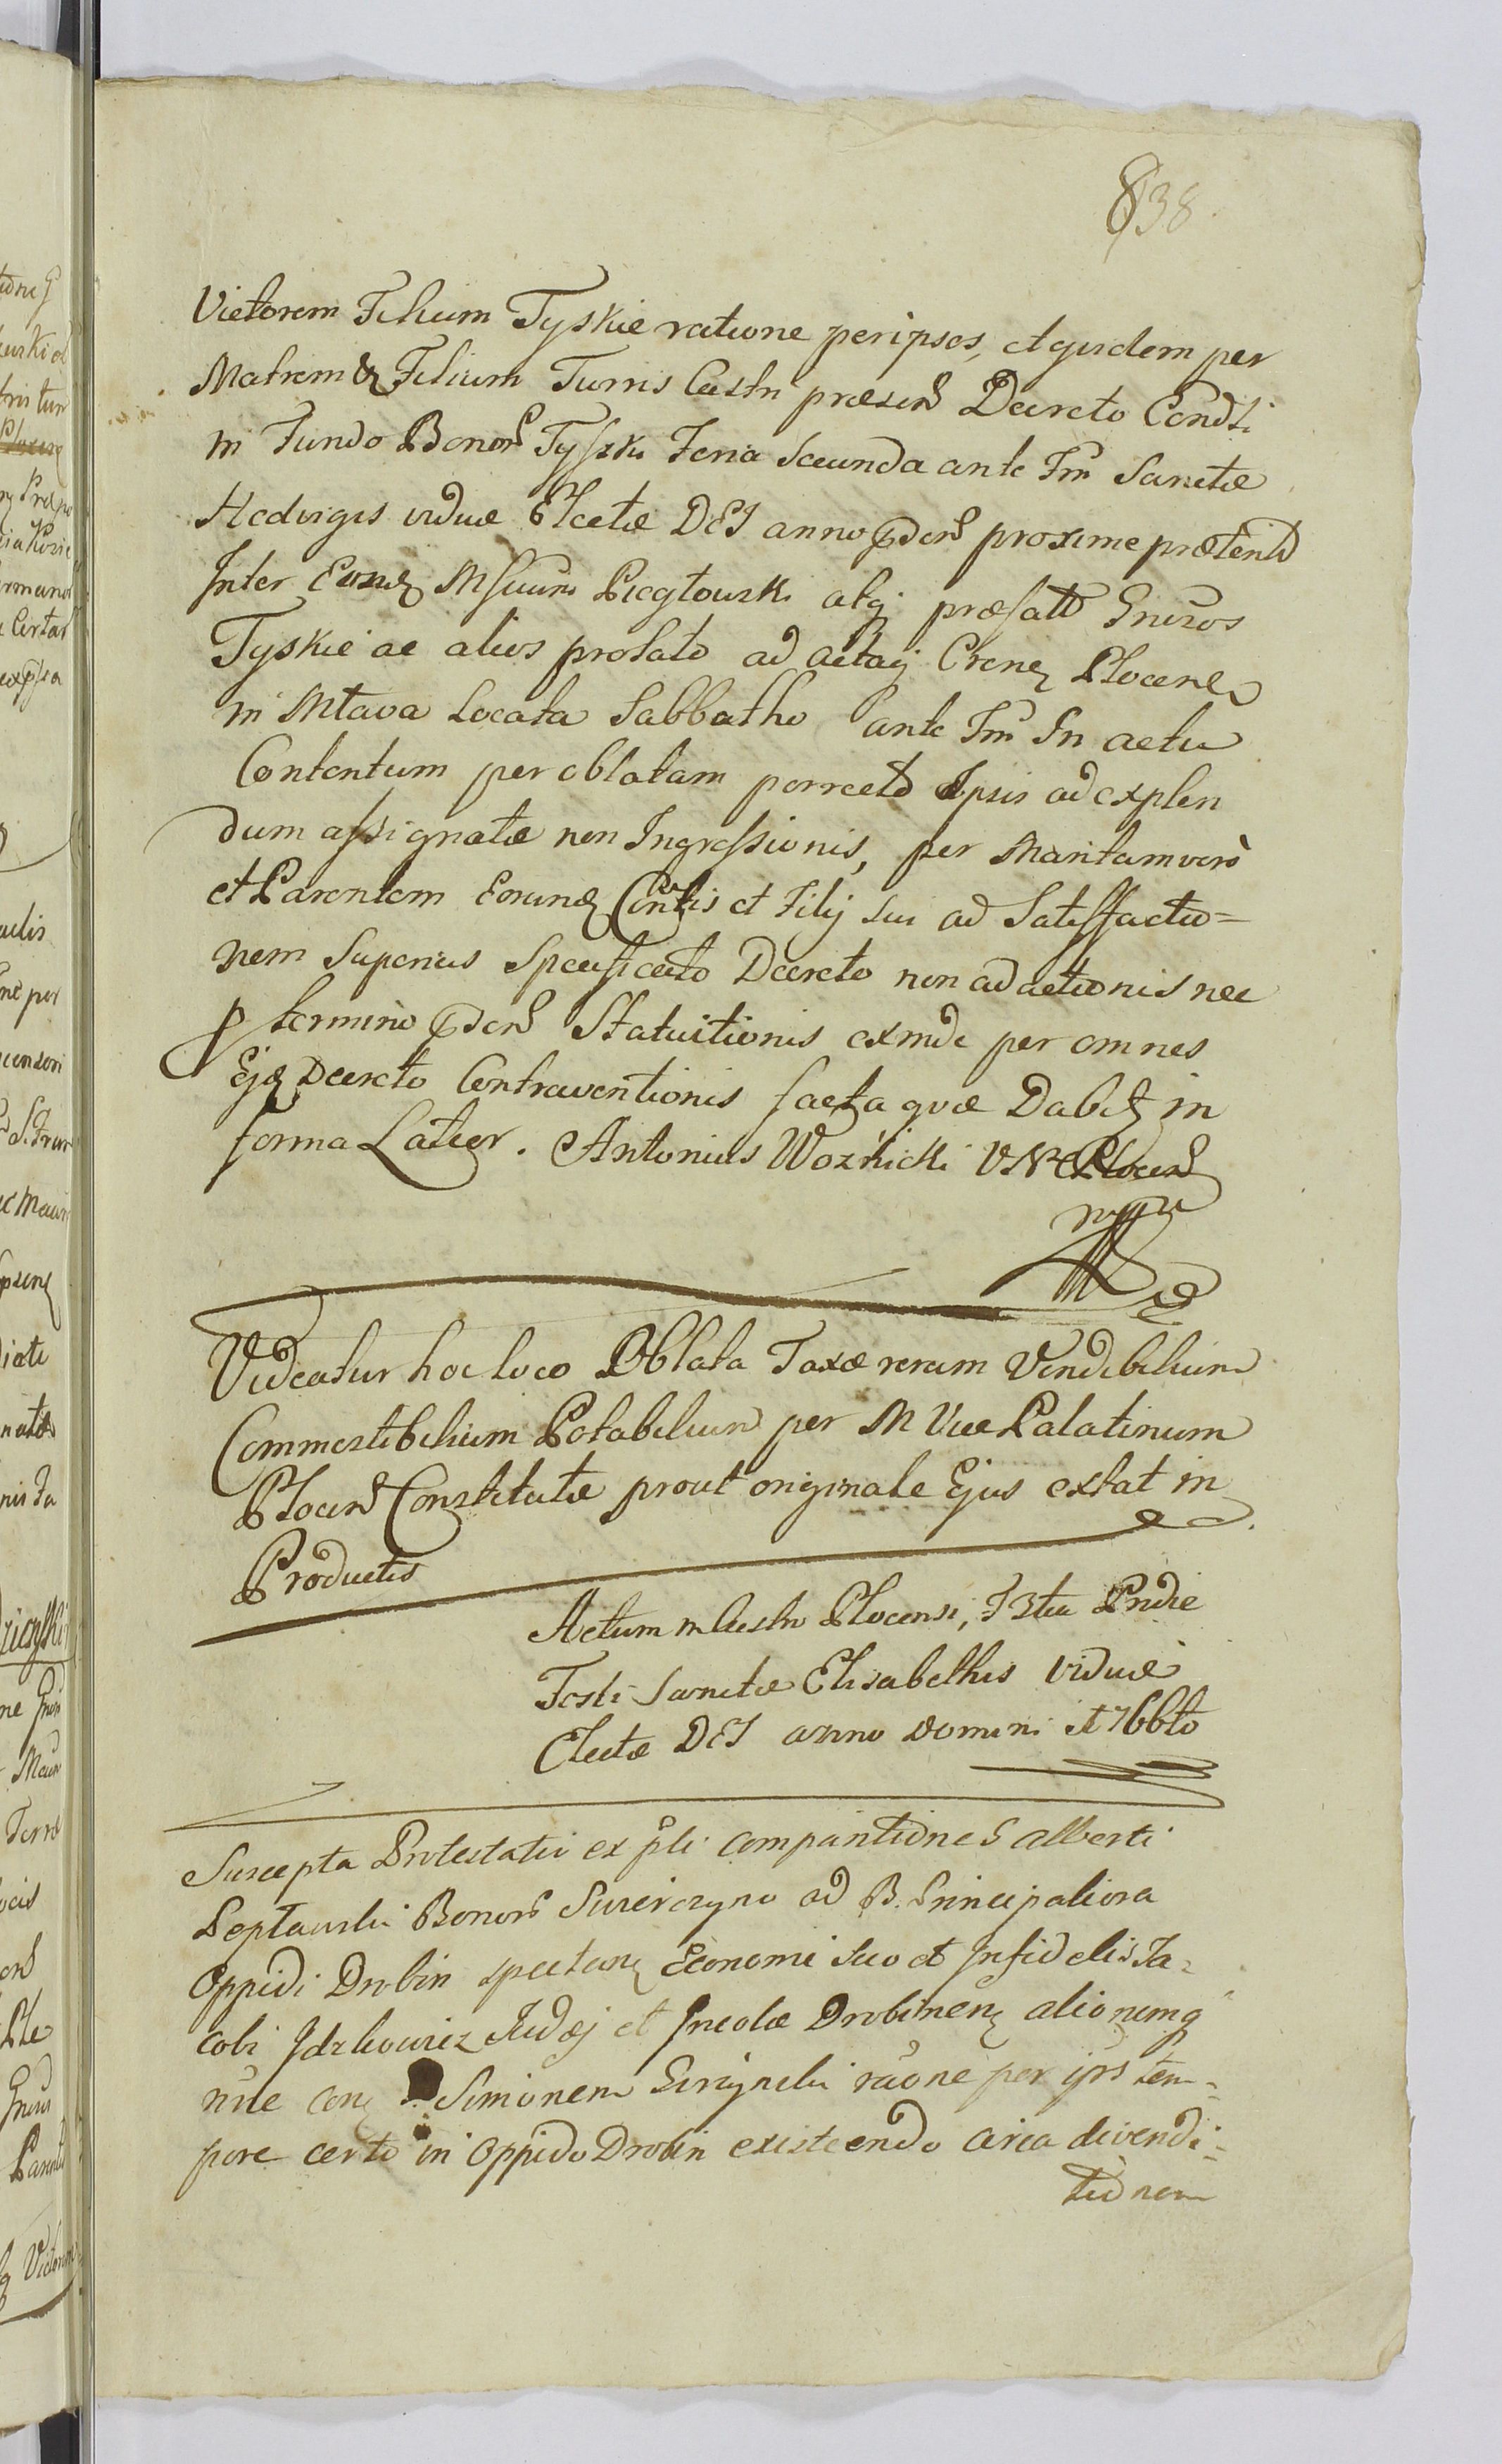 838
Victorem Filium Tyskie ratione per ipsos, et quidem per
Matrem & Filium Turris Castri præsen Decreto Condti
in Fundo Bonor Tyszki Feria Secunda ante Fm Sanctæ
Hedvigis viduæ Electæ DEI anno proxime præterito
Inter Eosdem Msuum Piegłowski atq præfatos Gnrosos
Tyskie ac alios prolato ad actaq Crenen Plocens
in Mława Locata Sabbatho ante Fm In actu
Contentum per oblatam porrecto Ipsis ad explen
dum assignatæ non Ingressionis, per Maritam vero
et Parentem Eorund Conlis et Filij sui ad Satisfactio=
nem Superius Specificato Decreto non adactionis nec
termino Statuitionis exinde per omnes
Ejq Decreto Contraventionis facta quæ Dabit in
forma Latior. Antonius Woźnicki Plocens
mpp
Videatur hoc loco Oblata Taxæ rerum Vendibilium
Commestibilium Potabilium per M Vice Palatinum
Plocen Constitutæ prout originale Ejus extat in
Productis
Actum in Castro Plocensi, Fria Pridie
Festi Sanctæ Elisabethis Viduæ
Electæ DEI anno Domini 1766to
Suscepta Protestatio ex pli comparitione G Alberti
Leptawski Bonor Swierczyno ad B. Principaliora
Oppidi Drobin spectan Economi suo et Infidelis Ja=
cobi Idzkowicz Judæj et Incolæ Drobinen alionumq
nne con Simonem raone per ips tem=
pore certo in Oppido Drobin existendo circa divendi=
tionem